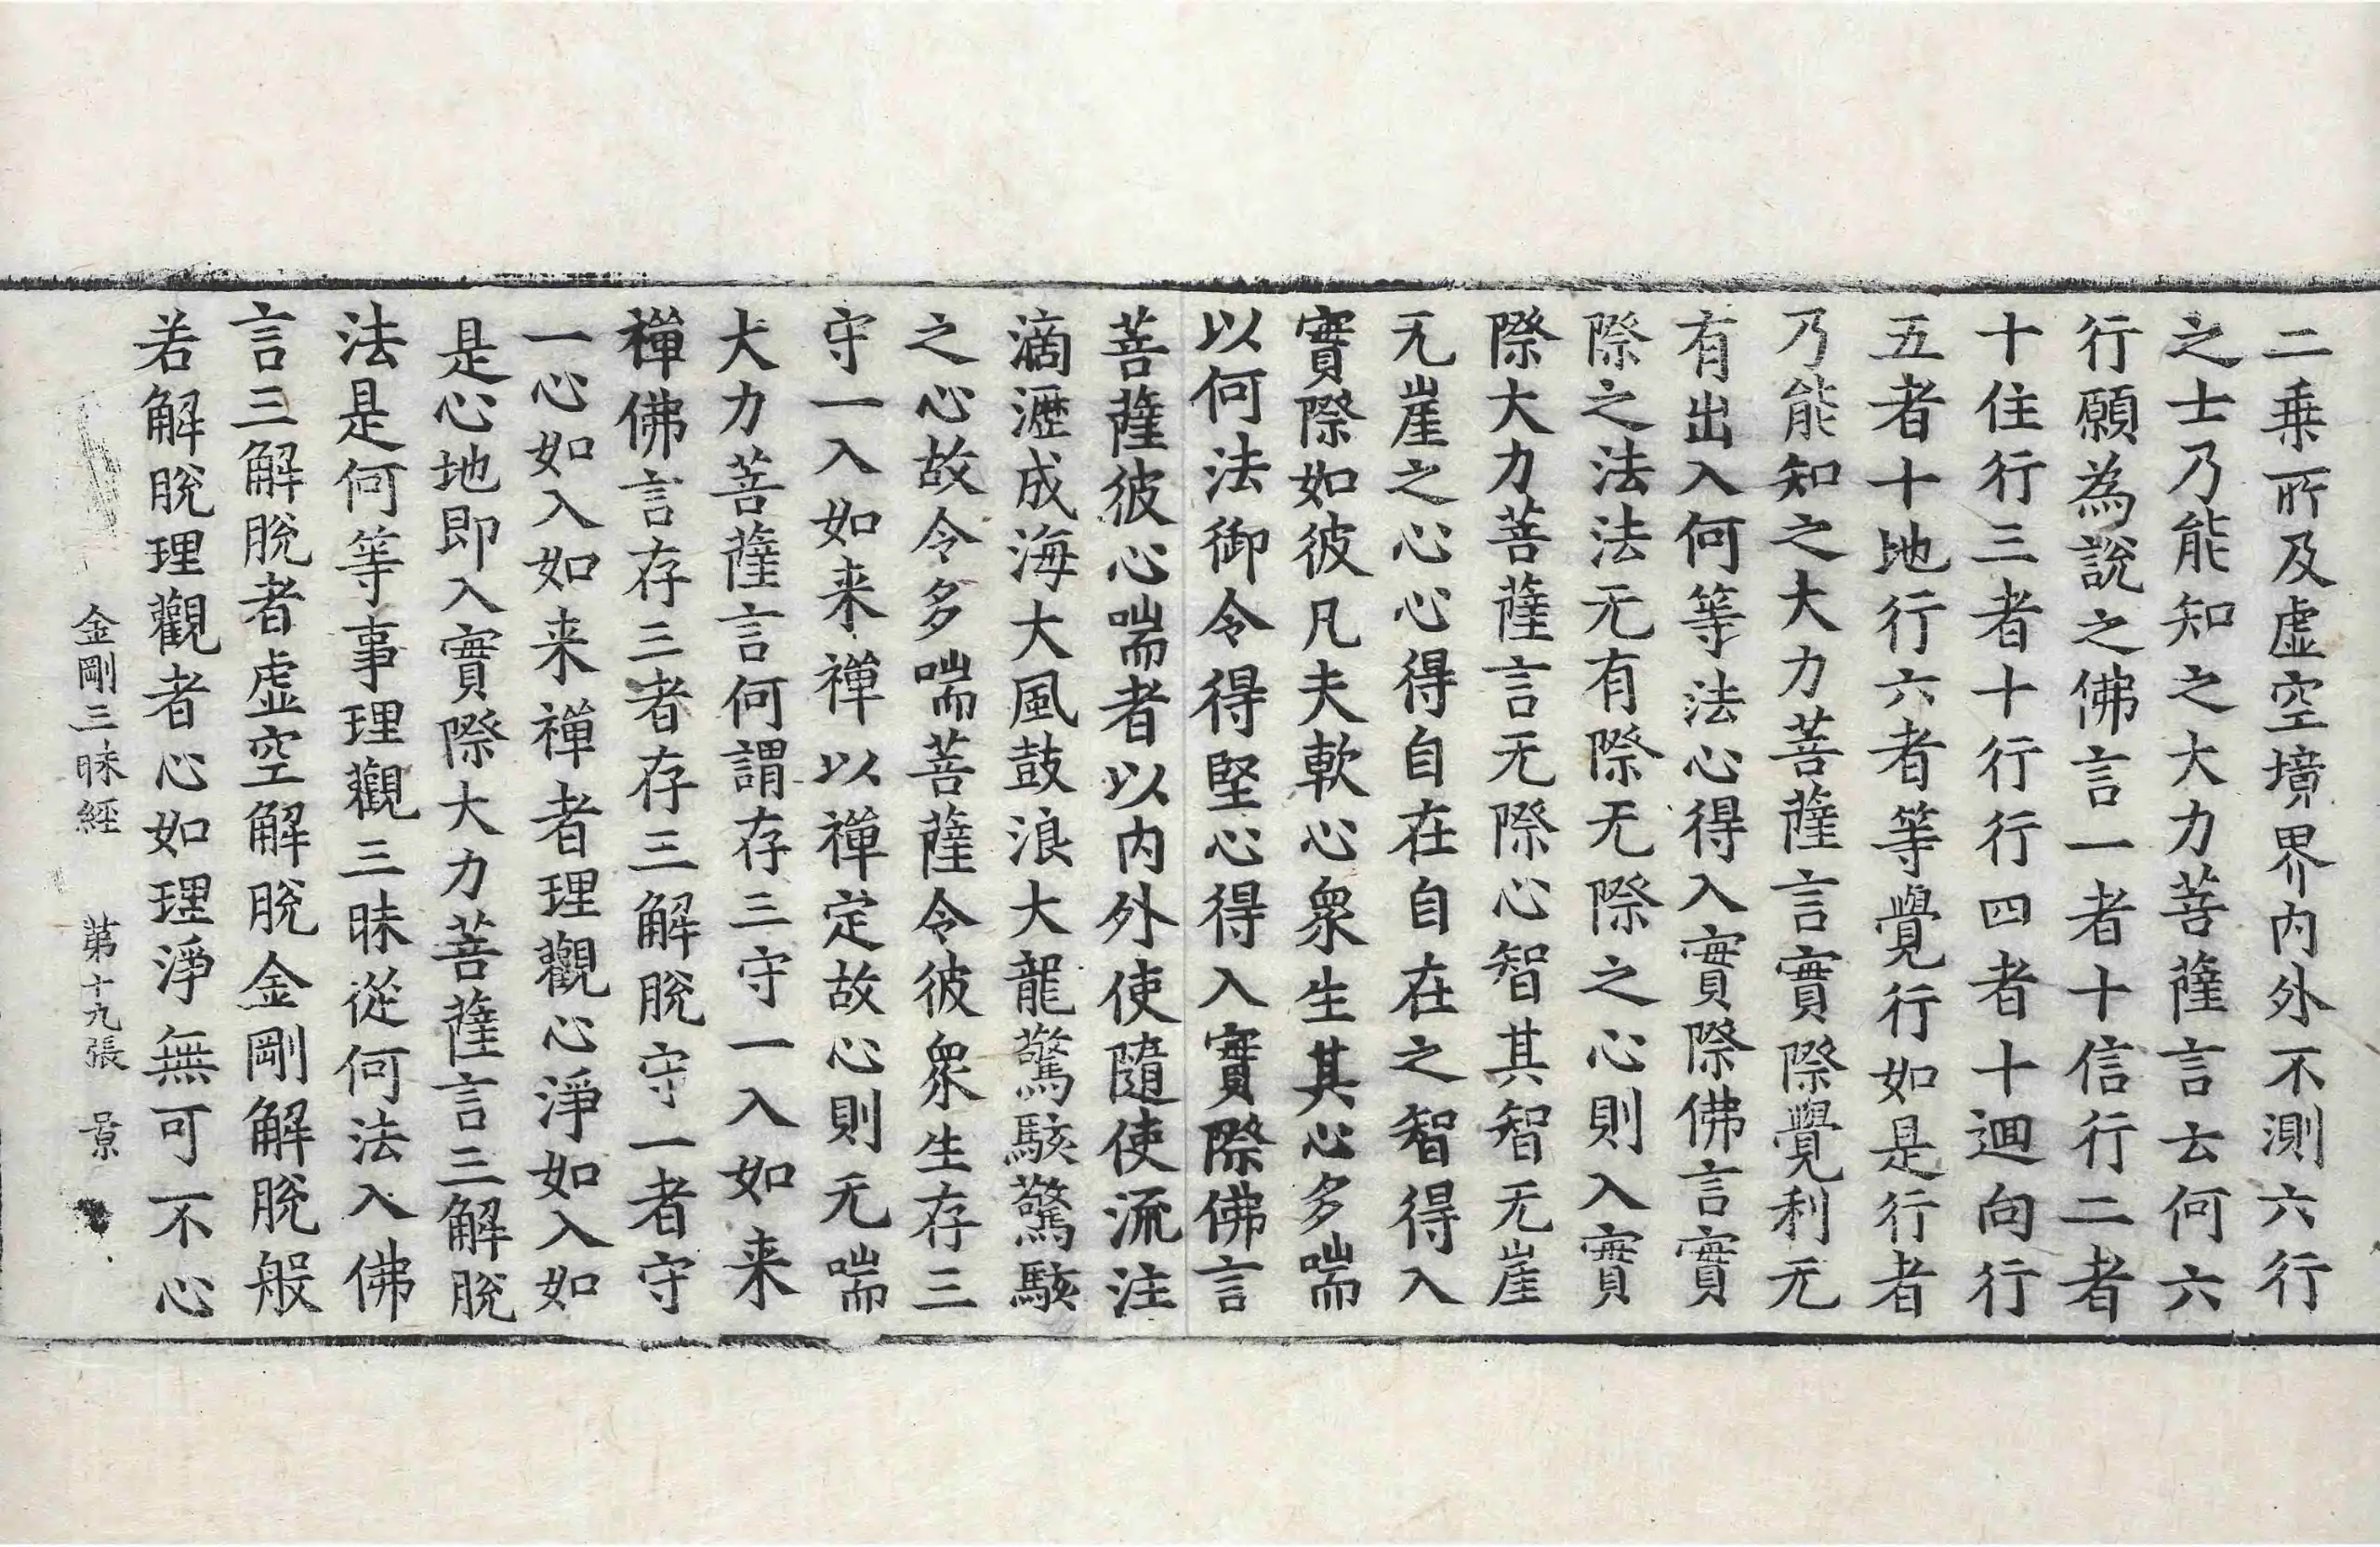 二乗所及虚空境界内外不測六行
之士乃能知之大力菩薩言云何六
行願為說之佛言一者十信行二者
十住行三者十行行四者十迴向行
五者十地行六者等覺行如是行者
乃能知之大力菩薩言實際覺利无
有出入何等法心得入實際佛言實
際之法法无有際无際之心則入實
際大力菩薩言无際心智其智无崖
无崖之心心得自在自在之智得入
實際如彼凡夫軟心衆生其心多喘
以何法御令得堅心得入實際佛言
菩薩彼心喘者以内外使隨使流注
滴瀝成海大風鼓浪大龍驚駭驚駭
之心故令多喘菩薩令彼衆生存三
守一入如来禪以禪定故心則无喘
大力菩薩言何謂存三守一入如来
禪佛言存三者存三解脫守一者守
一心如入如来禪者理觀心淨如入如
是心地即入實際大力菩薩言三解脫
法是何等事理觀三昧從何法入佛
言三解脫者虚空解脫金剛解脫般
若解脫理觀者心如理淨無可不心
金剛三昧經 苐十九張 景